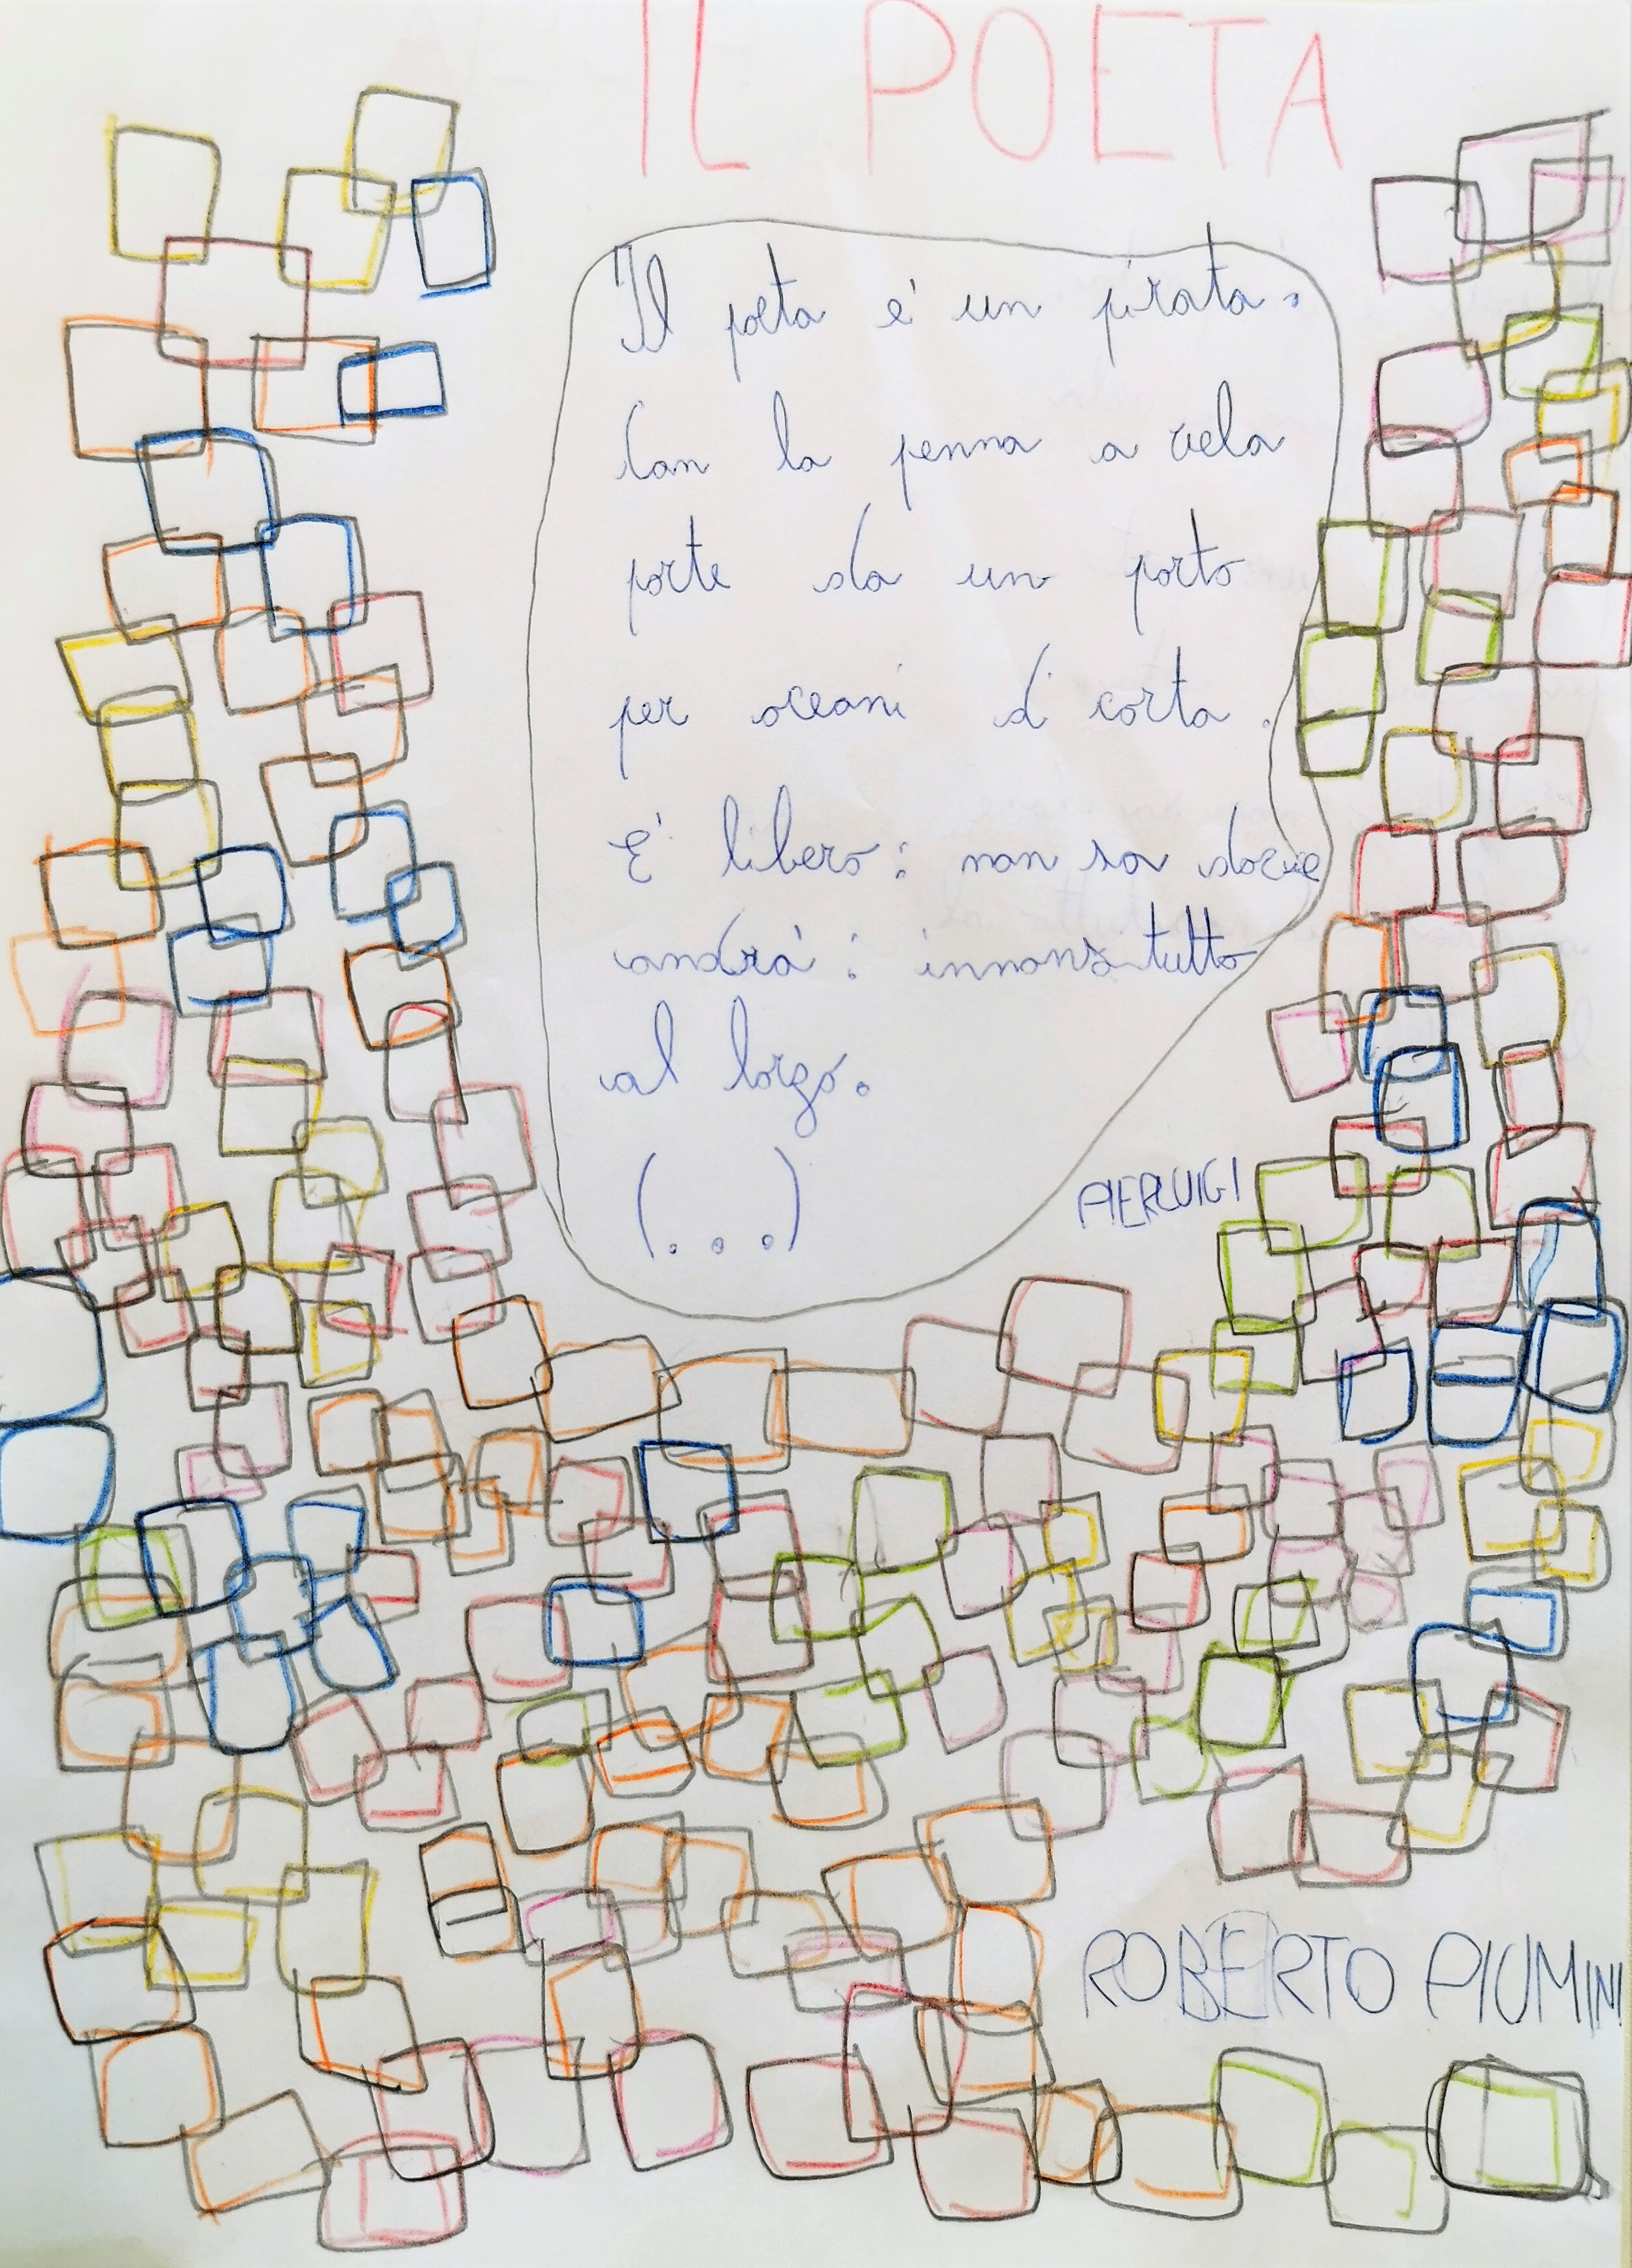 IL POETA
Il poeta è un pirata.
Con la penna a vela
parte da un porto
per oceani di carta.
È libero: non sa dove
andrà: innanzitutto
al largo.
(...)
PIERLUIGI
ROBERTO PIUMINI